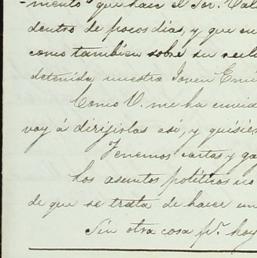 -miento que hace el Sor. Val
dentro de pocos dias, y que en
como tambien sobre su
detenida, nuestro Joven Emi
Como V. me ha envia
voy á dirijirlas asi, y quisie
Tenemos cartas y ga
Los asuntos politicos
de que se trata de hacer un
Sin otra cosa pr. hoy